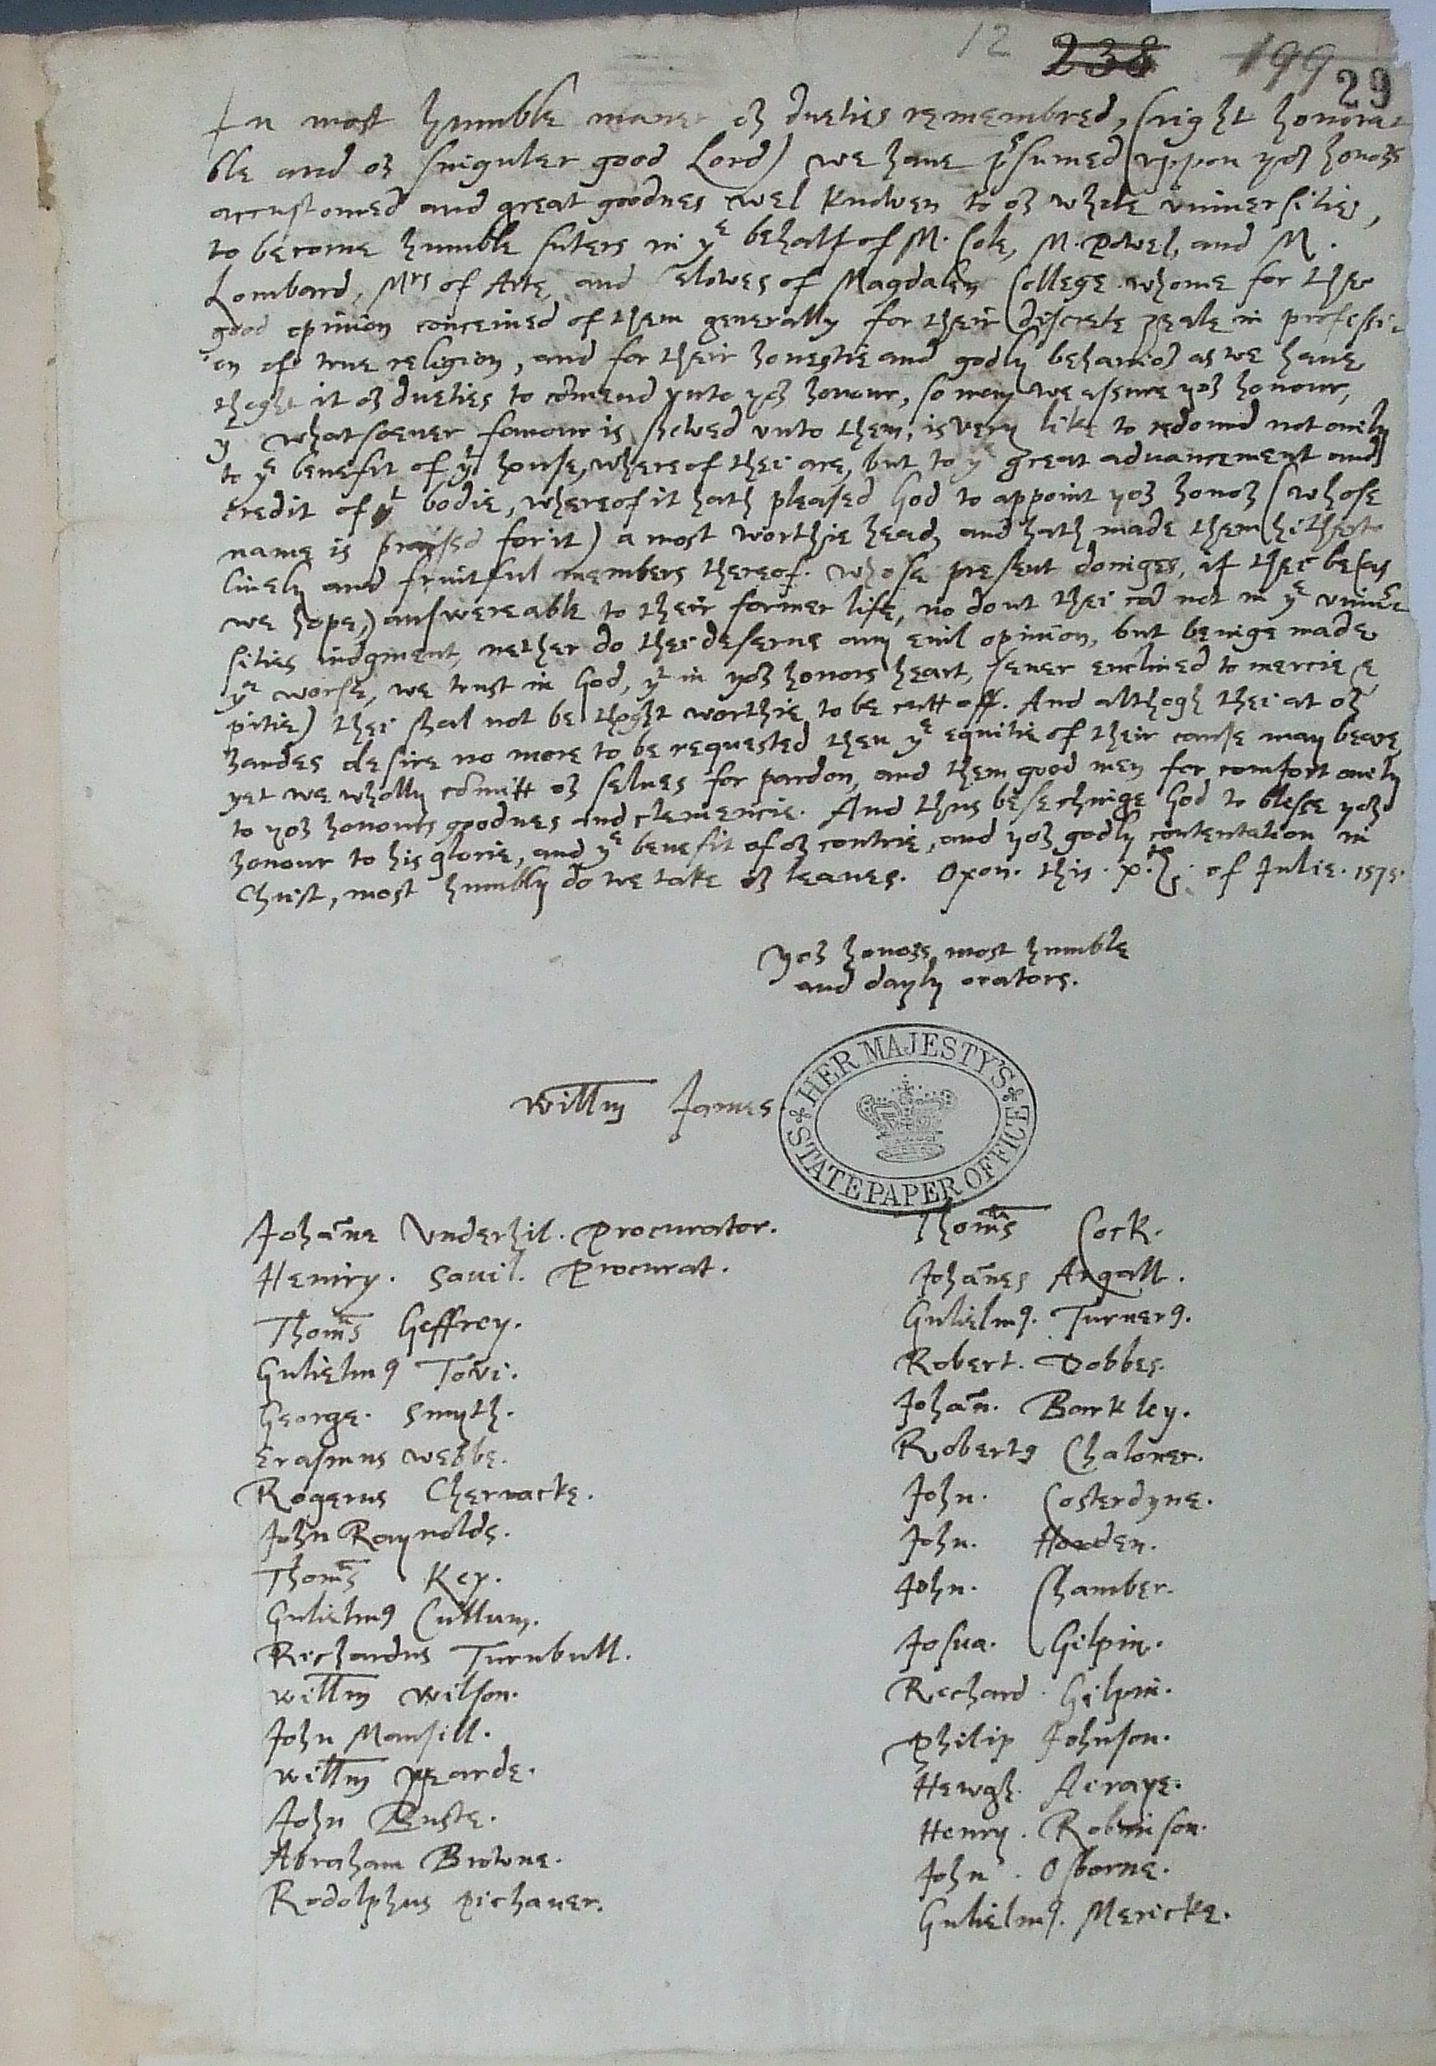 12 238 199 29
In most humble maner oʳ dueties remembred, (right honora=
ble and oʳ singuler good Lord) we haue pʳsumed (vppon yoʳ honoʳs
accustomed and great goodnes wel knowen to oʳ whole vniuersitie,
to become humble suters in yᵉ behalf of M. Cole, M. Powel, and M.
Lombard, Mʳˢ of Arte, and felowes of Magdalen College whome for the
good opinion conceiued of them generally for their discrete zeale in professi=
on of true religion, and for their honestie and godly behauioʳ as we haue
thoght it oʳ dueties to cōmend vnto yoʳ honour, so may we assure yoʳ honour,
yᵗ whatsoeuer fauour is shewed vnto them, is very like to redound not onely
to yᵉ benefit of yᵗ house, whereof thei are, but to yᵉ great aduancement and
credit of yᵗ bodie, whereof it hath pleased God to appoint yoʳ honoʳ (whose
name is praised for it) a most worthie head, and hath made them hitherto
liuely and fruitful members thereof. Whose present doinges, if thei be (as
we hope,) answereable to their former life, no dout thei cād not in yᵉ vniuer
sities iudgment, nether do thei deserue any euil opinion, but beinge made
yᵉ worse, we trust in God, yᵗ in yoʳ honors heart, (euer enclined to mercie &
pitie) thei shal not be thoght worthie to be cutt off. And althogh thei at oʳ
handes desire no more to be requested then yᵉ equitie of their cause may beare,
yet we wholly cōmitt oʳ selues for pardon, and them good men for comfort onely
to yoʳ honours goodnes and clemencie. And thus besechinge God to blesse yoʳ
honour to his glorie, and yᵉ benefit of oʳ contrie, and yoʳ godly contentation in
Christ, most humbly do we take oʳ leaues. Oxon. this of Julie. 1575.
Yoʳ honoʳs most humble
and dayly orators.
Willm James
HER MAJESTY'S STATE PAPER OFFICE
Johāne Vnderhil. Procurator.
Henry. Sauil. Procurat.
Thoms Geffrey.
Gulielmꝰ Tovi.
George. Smyth.
Erasmus Webbe.
Rogerus Cherwacke.
John Raynolds.
Thoms Key.
Gulielmꝰ Cullum.
Richardus Turnbull.
Willm Wilson.
John Mansill.
Willm Wearde.
John Buste.
Abraham Browne.
Rodolphus Pichauer.
Thoms Cock.
Johānes Argall.
Gulielmꝰ. Turnerꝰ.
Robert. Dobbes.
Johān. Barkley.
Robertꝰ Chaloner.
John. Costerdyne.
John. Howden.
John. Chamber.
Josua. Gilpin.
Richard. Gilpin.
Philip Johnson.
Hewgh. Airaye.
Henry. Robinson.
John. Osborne.
Gulielmꝰ. Mericke.